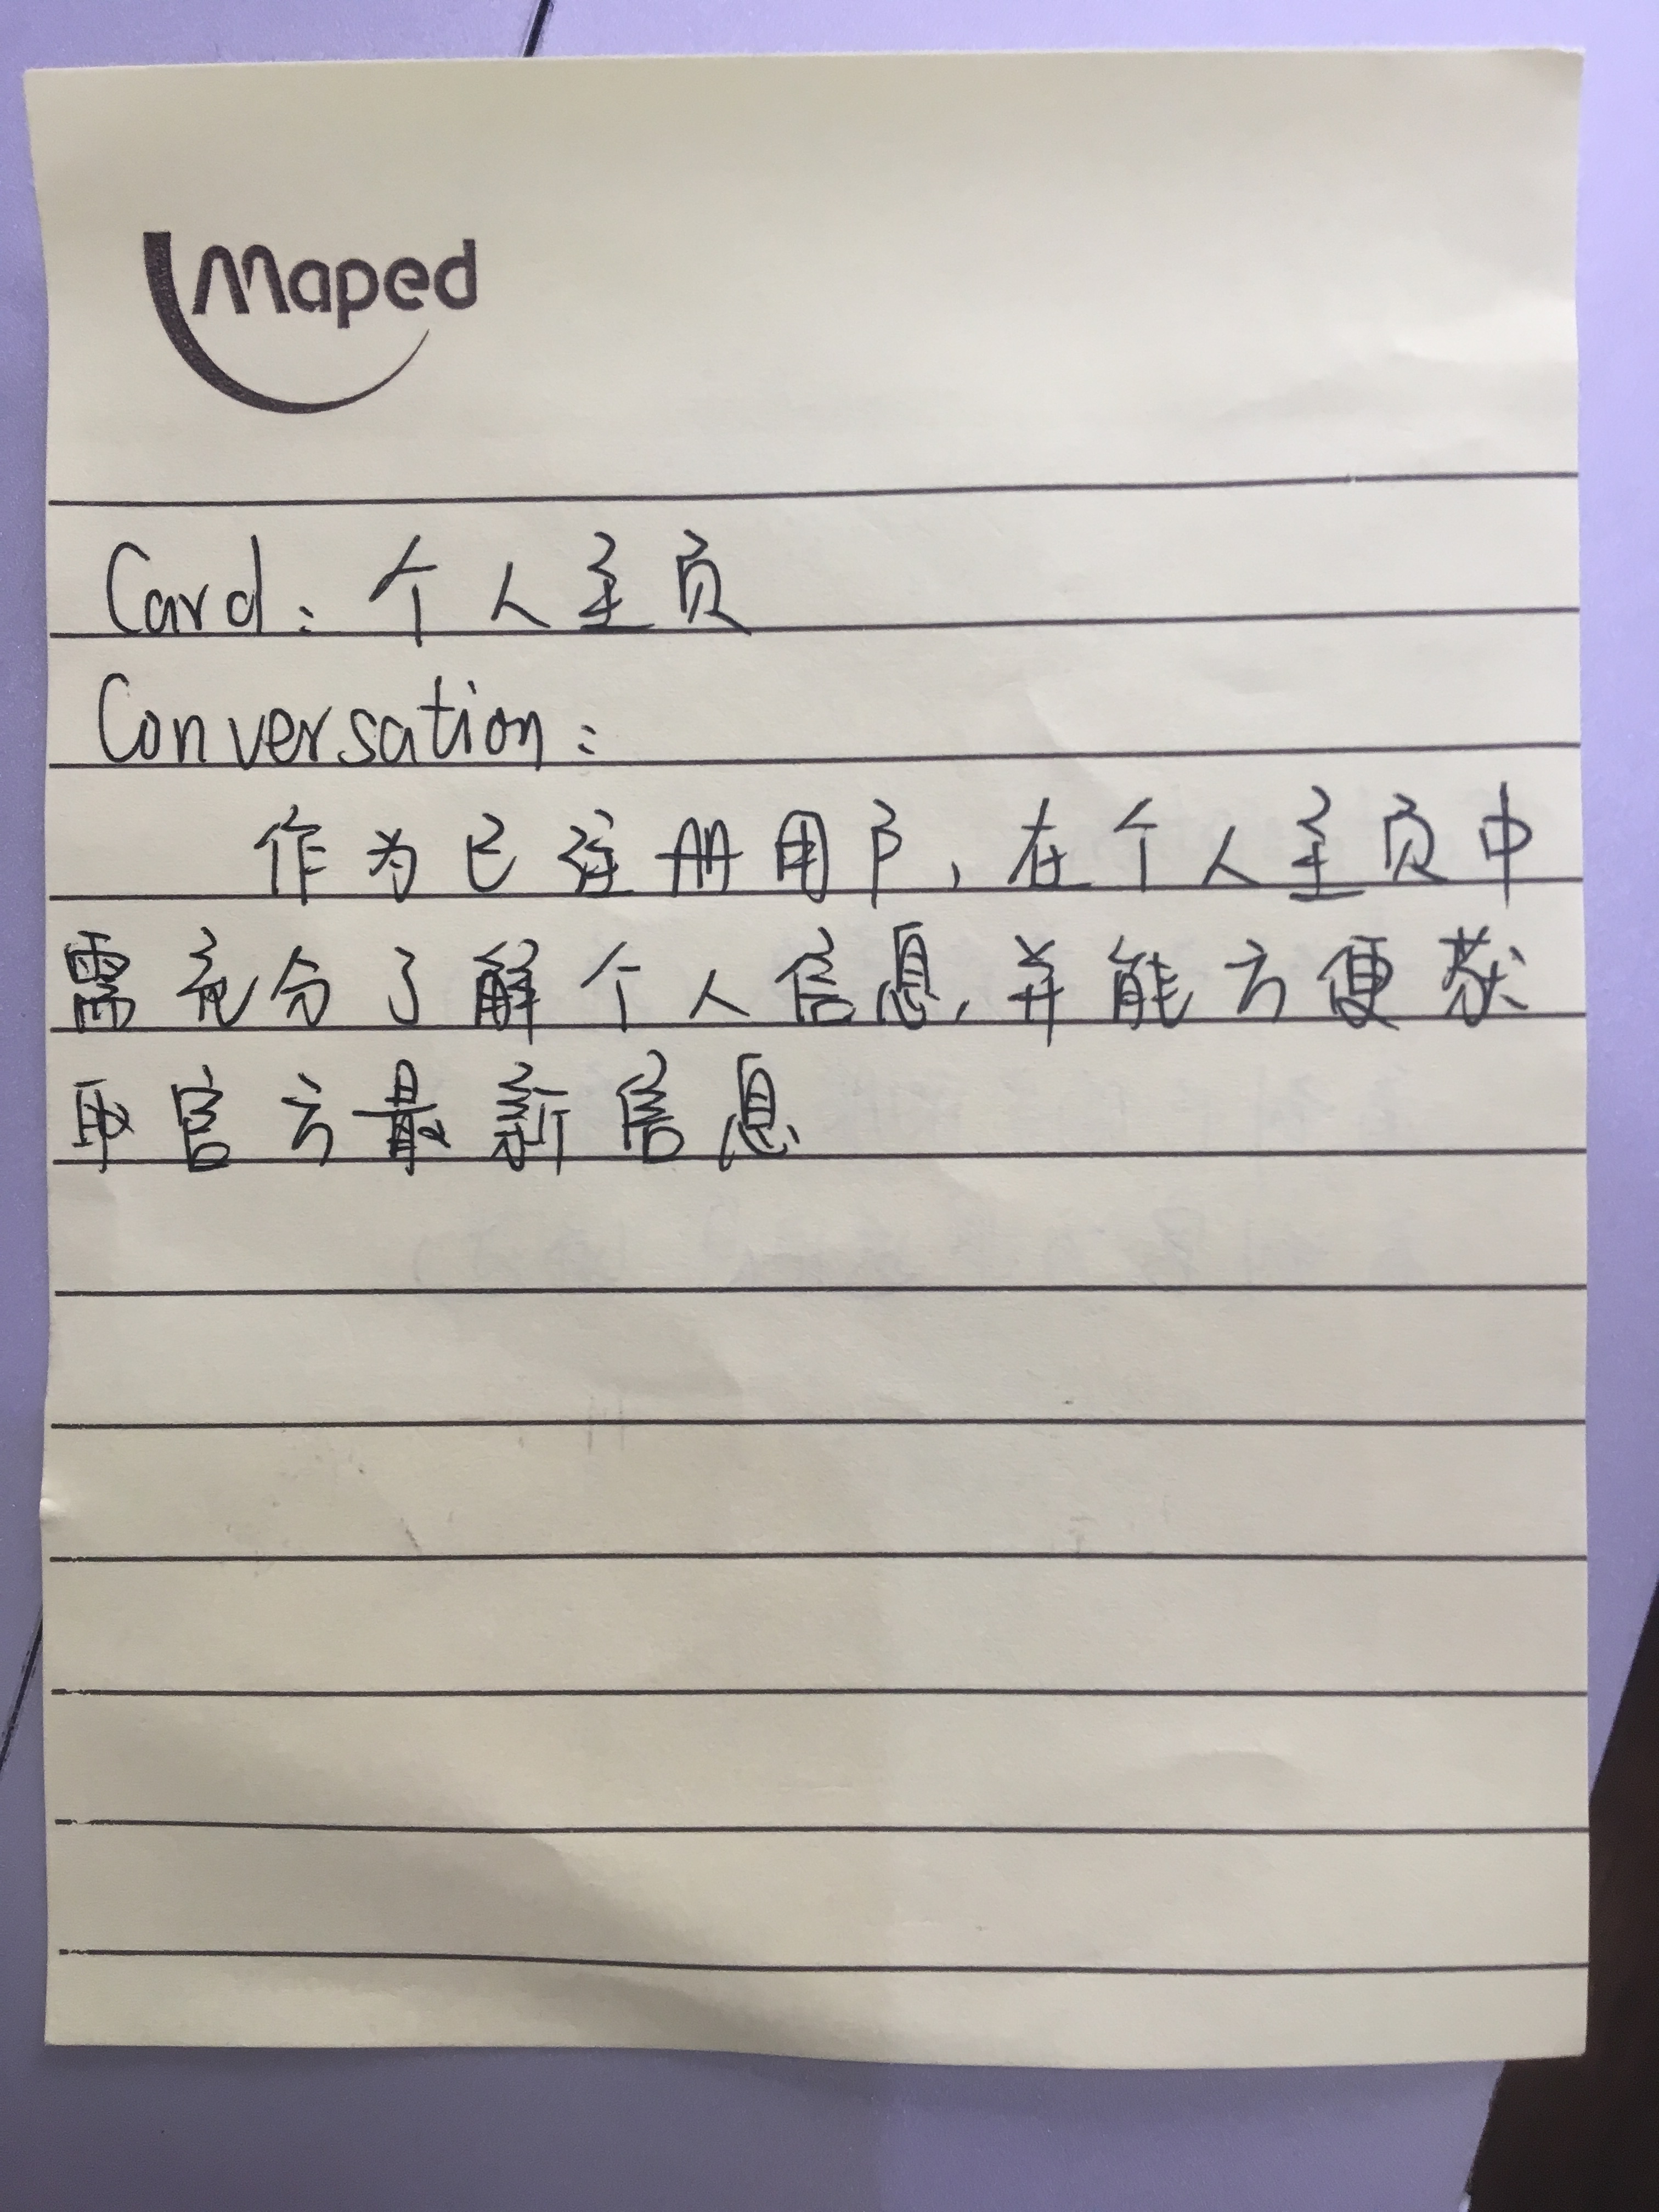 Maped
Card: 个人主页
Conversation:
作为已注册用户,在个人主页中
需充分了解个人信息,并能方便获
取官方最新信息